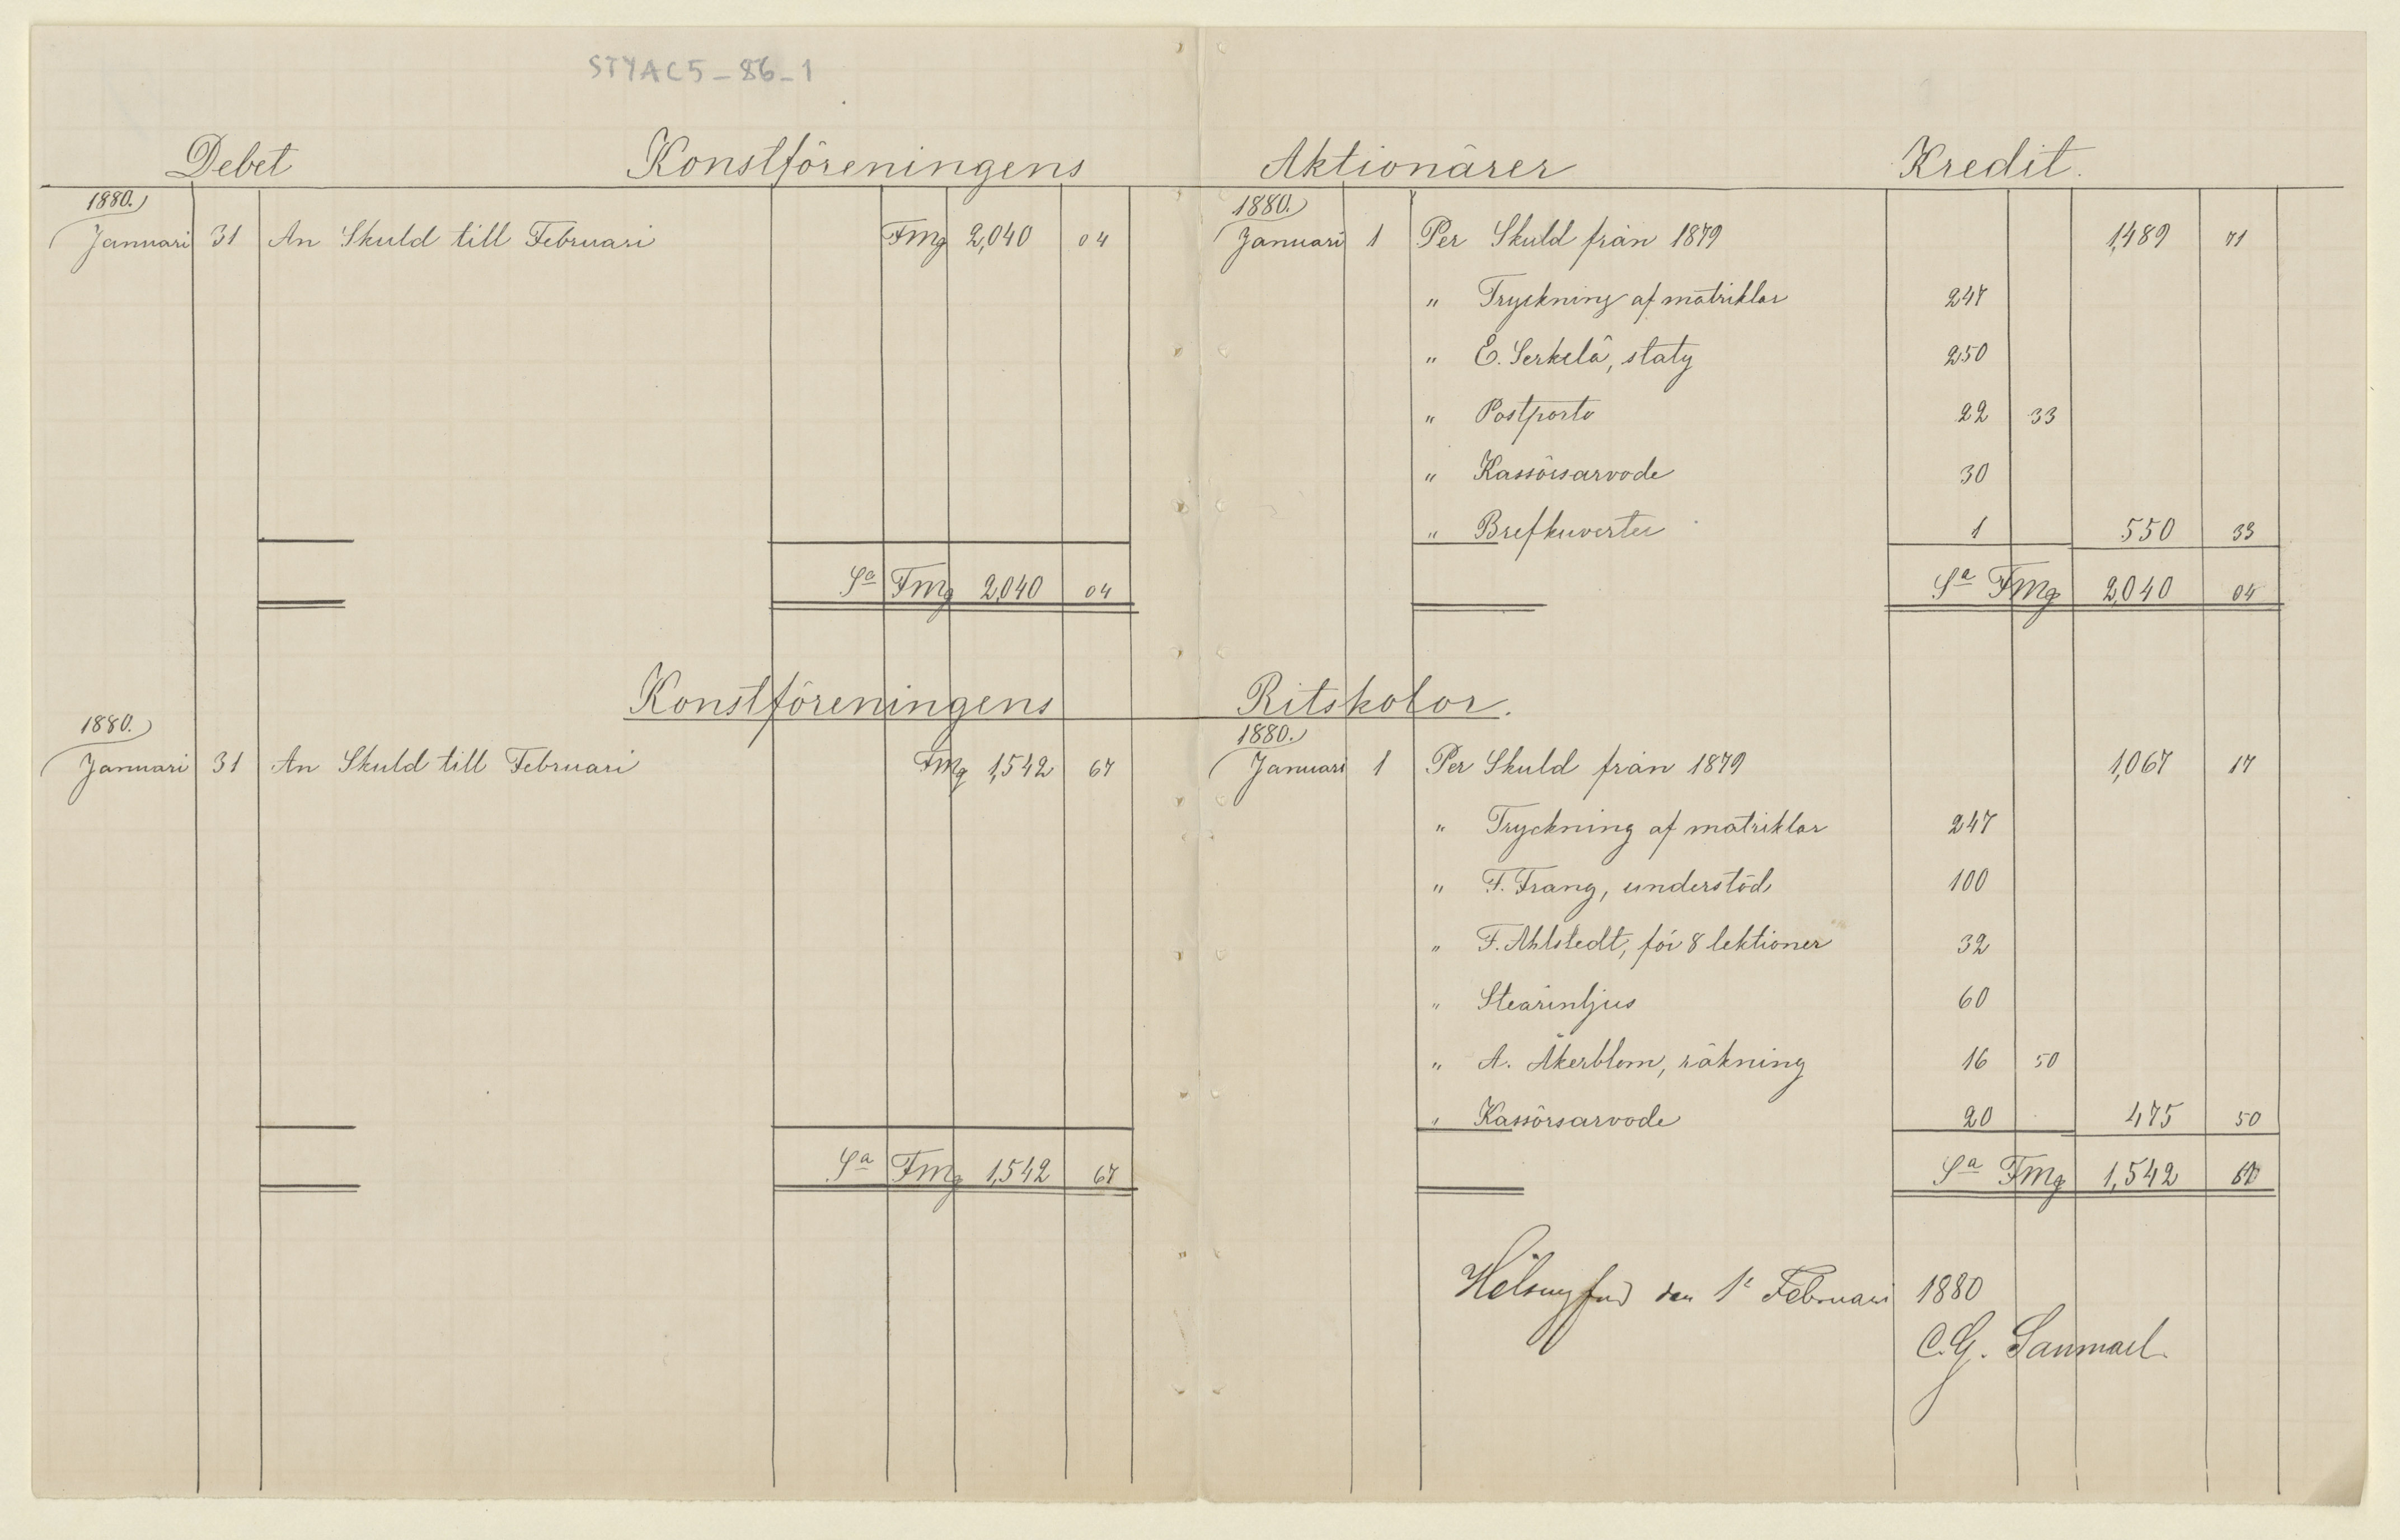 STYAC5-86-1
Debet Konstföreningens Aktionärer Kredit.
1880.
Januari 31 An Skuld till Februari Fmg 2,040 04
1880.
Januari 1 Per Skuld från 1879 1,489 71
" Tryckning af matriklar 247
" E. Serkelä, staty 250
" Postporto 22 33
" Kassörsarvode 30
" Brefkuverter 1 550 33
Sa Fmg 2,040 04
Sa Fmg 2,040 04
Konstföreningens Ritskolor.
1880.
Januari 31 An Skuld till Februari Fmg 1,542 67
1880.
Januari 1 Per Skuld från 1879 1,067 17
" Tryckning af matriklar 247
" F. Frang, understöd 100
" F. Ahlstedt, för 8 lektioner 32
" Stearinljus 60
" A. Åkerblom, räkning 16 50
" Kassörsarvode 20 475 50
Sa Fmg 1,542 67
Sa Fmg 1,542
Helsingfors den 1e Februari 1880
C.G. Sanmark.